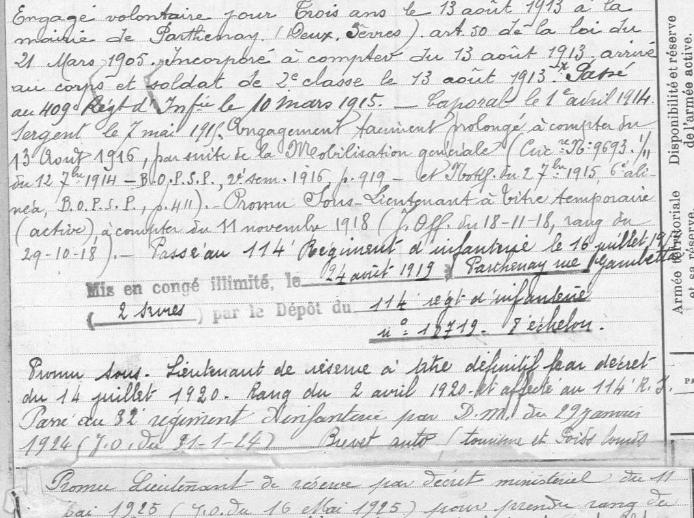 Engagé volontaire pour Trois ans le 13 août 1913 à la
mairie de Parthenay (Deux. Sèvres). art. 50 de la loi du
21 Mars 1905. Incorporé à compter du 13 août 1913 arrivé
au corps et soldat de 2e classe le 13 août 1913. Passé
au 409e Régt d'Infie le 10 mars 1915. — Caporal le 1e avril 1914.
Sergent le 7 mai Engagement tacitement prolongé, à compter du
13 Août 1916, par suite de la Mobilisation générale (Circ re No 9693. 1/11
du 12 7bre 1914 — B.O.P.S.P., 2e sem. 1916 p. 919 — et Notif. du 27 7bre 1915, 6e ali-
néa, B.O.P.S.P., p. 411). — Promu Sous-Lieutenant à titre temporaire
(active) à compter du 11 novembre 1918 (J. Off. du 18-11-18, rang du
29-10-18). — Passé au 114e Régiment d'infanterie le 16 juillet
Mis en congé illimité, le 24 août 1919 Parthenay rue Gambetta
(2 Sèvres) par le Dépôt du 114e régt d'infanterie
no 18719. échelon.
Promu Sous. Lieutenant de réserve à titre définitif par décret
du 14 juillet 1920. Rang du 2 avril 1920. et affecté au 114e R.I.
Passé au 32e régiment d'infanterie par D.M. du 29 janvier
1924 (J.O. du 31-1-24) Brevet auto (tourisme et Poids lourds
Promu Lieutenant de réserve par décret ministériel du 11
Mai 1925 (J.O. du 16 Mai 1925) pour prendre rang du
Disponibilité et réserve
de l'armée active.
Armée territoriale
et sa réserve.